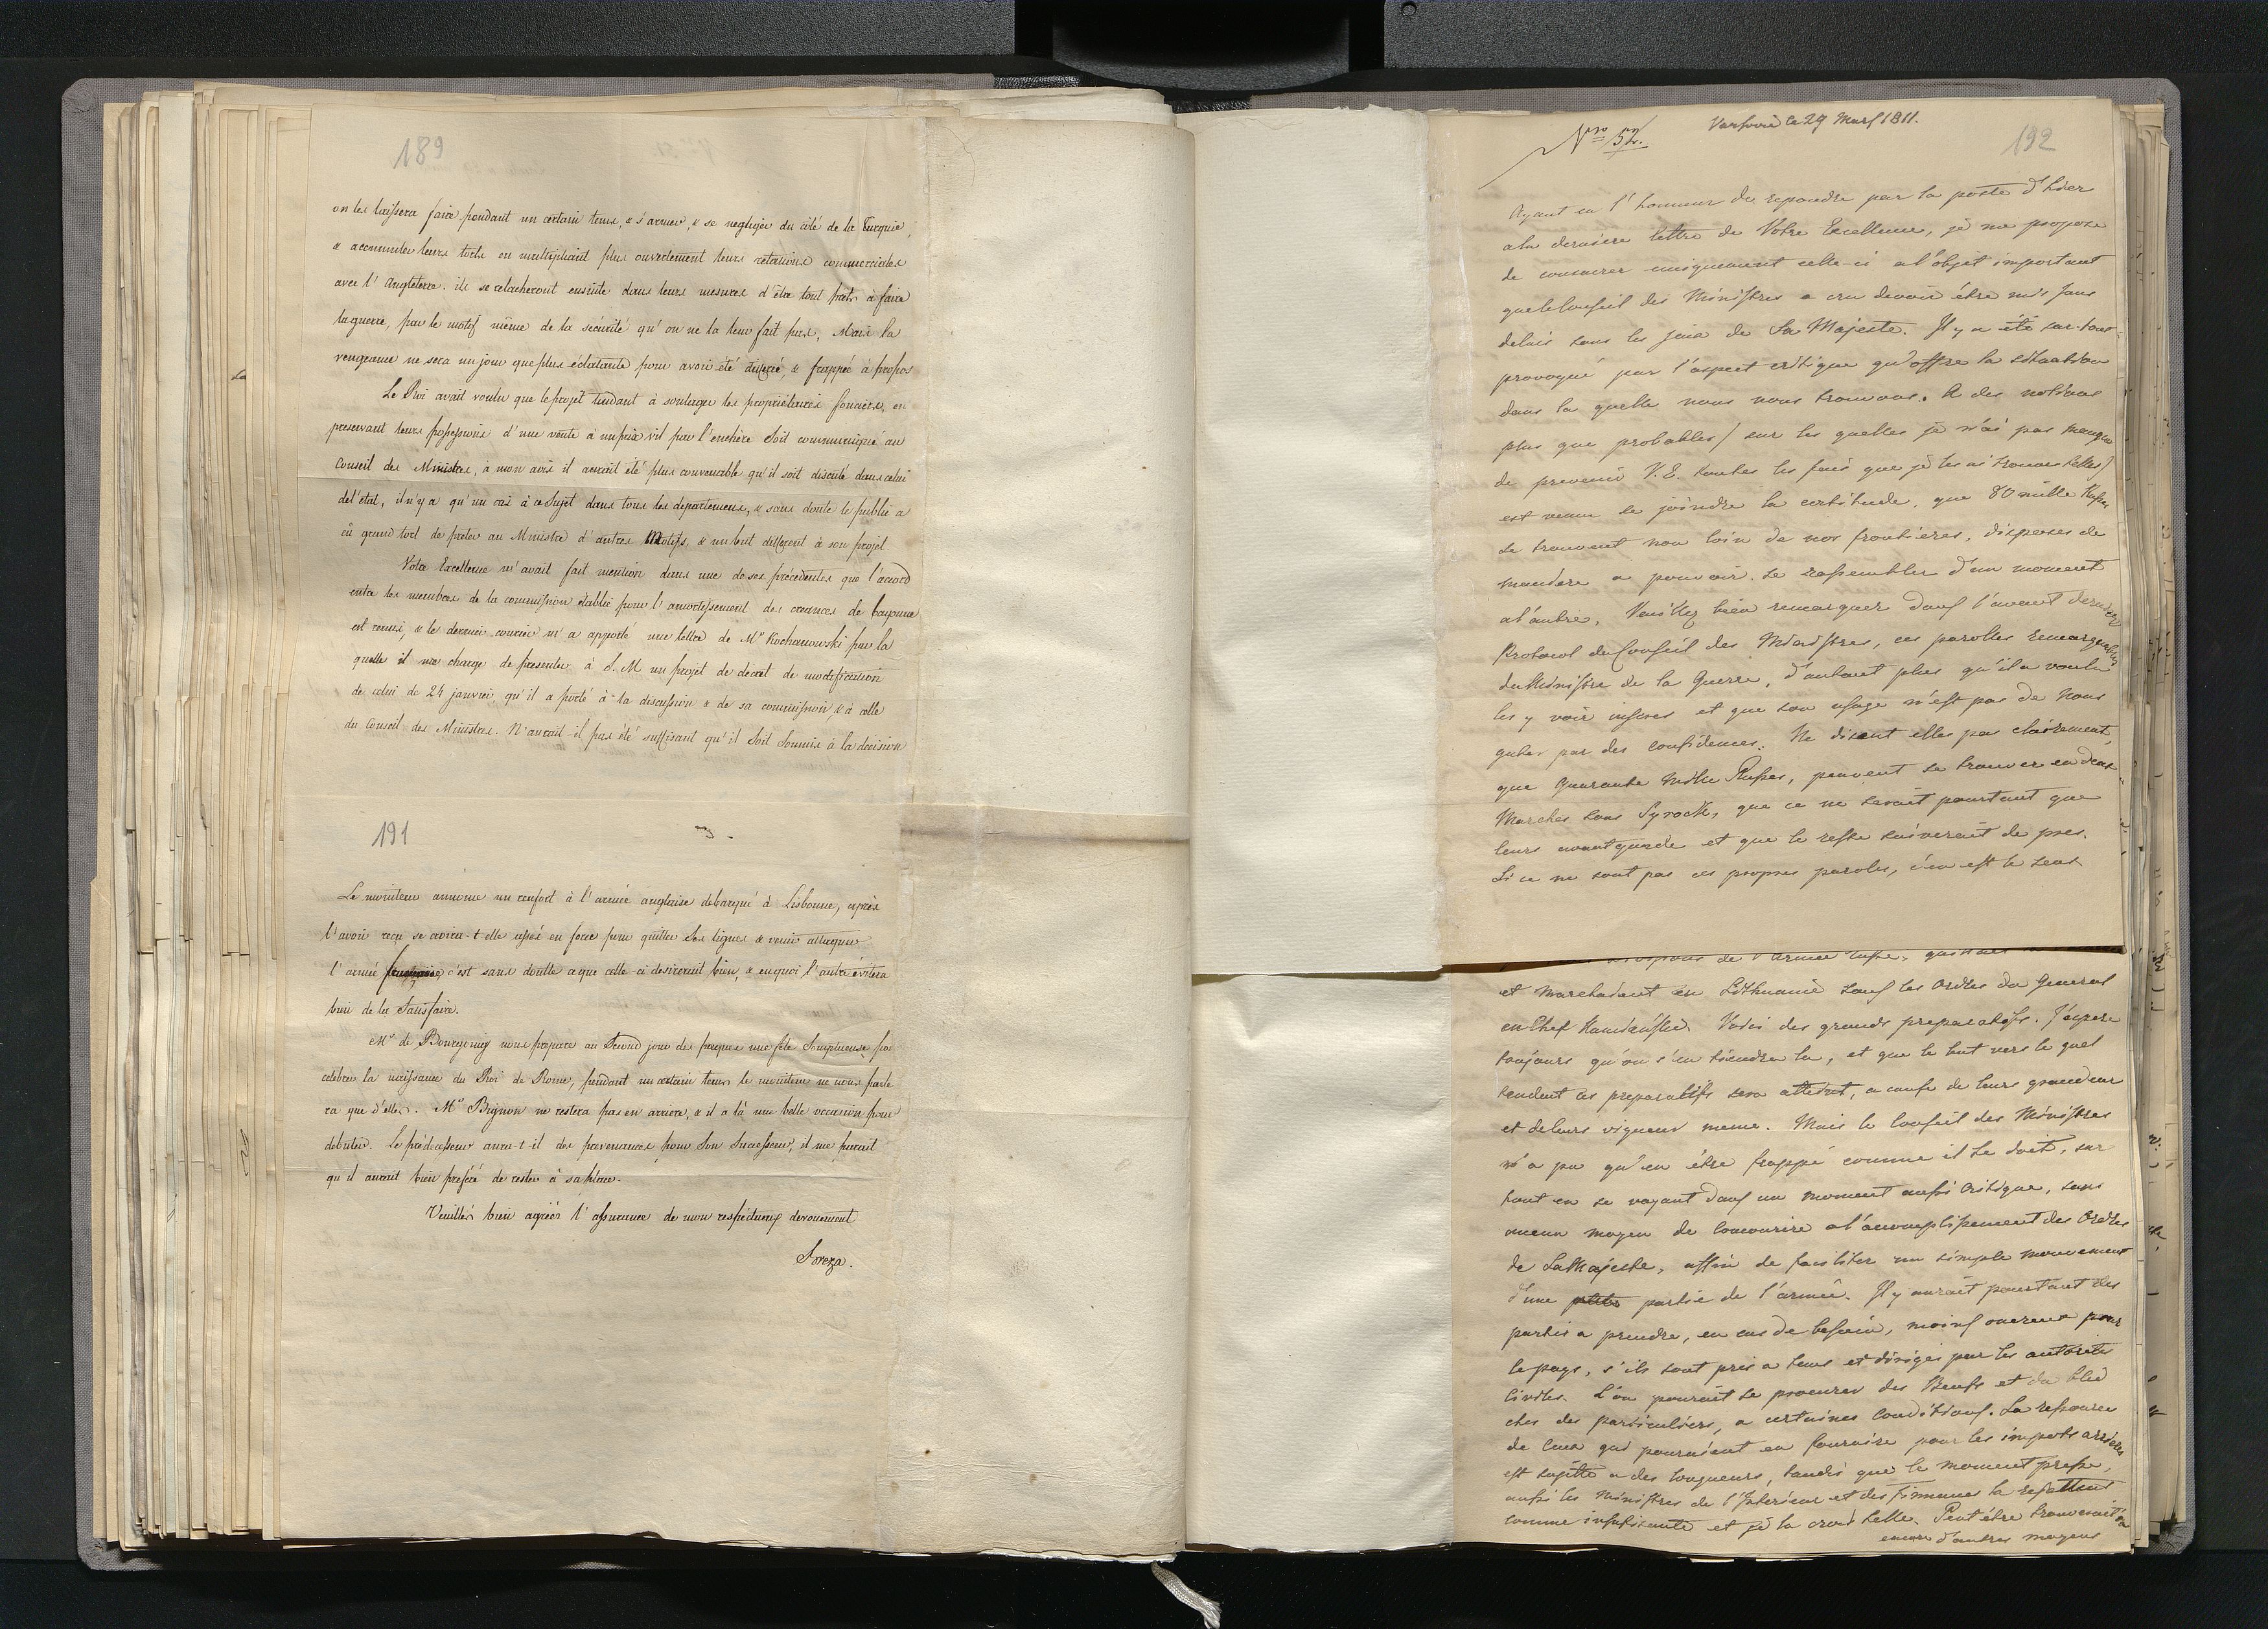 189
on les laissera faire pendant un certain tems, & s'armer, & se negliger du côté de la Turquie,
& accumuler leurs torts en multipliant plus ouvertement leurs relations commerciales
avec l'Angleterre. ils se relacheront ensuite dans leurs mesures d'être tout prets à faire
la guerre, par le motif même de la sécurité qu'on ne la leur fait pas, Mais la
vengeance ne sera un jour que plus éclatante pour avoir été differée, & frappée à propos
Le Roi avait voulu que le projet tendant à soulager les propriétaires fonciers, en
preservant leurs possessions d'une vente à un prix vil par l'enchère soit communiqué au
Conseil des Ministres, à mon avis il aurait été plus convenable qu'il soit discuté dans celui
de l'état, il n'y a qu'un cri à ce sujet dans tous les departemens, & sans doute le public a
eû grand tort de preter au Ministre d'autres Motifs, & un but different à son projet
Votre Excellence m'avait fait mention dans une de ses précédentes que l'accord
entre les membres de la commission établie pour l'amortissement des creances de bayonne
est reussi, & le dernier courier m'a apporté une lettre de Mr Kochanowski par la
quelle il me charge de presenter à S. M un projet de decret de modification
de celui de 24 janvier, qu'il a porté à la discussion & de sa commission & à celle
du Conseil des Ministres. N'aurait-il pas été suffisant qu'il soit soumis à la decision
191
3.
Le moniteur annonce un renfort à l'armée anglaise debarqué à Lisbonne, après
l'avoir reçu se croira-t-elle assés en force pour quitter ses lignes & venir attaquer
l'armée française c'est sans doutte ce que celle ci desirerait bien, & en quoi l'autre évitera
bien de la satisfaire.
Mr de Bourgoing nous prepare au second jour des paques une fête somptueuse pour
celebrer la naissance du Roi de Rome, pendant un certain tems le moniteur ne nous parle
ra que d'elles. Mr Bignon ne restera pas en arriere, & il a là une belle occasion pour
debuter. Le prédecesseur aura-t-il des prevenances pour son successeur, il me parait
qu'il aurait bien preferé de rester à sa place.
Veuillés bien agréer l'assurance de mon respectueux devouement
Breza.
Nro 52.
Varsovie le 29 Mars 1811.
192
Ayant eu l'honneur de repondre par la poste d'hier
a la derniere lettre de Votre Excellence, je me propose
de consacrer uniquement celle-ci a l'objet important
que le Conseil des Ministres a cru devoir être mis sans
delais sous les yeux de Sa Majeste. Il y a été sur-tout
provoqué par l'aspect critique qu'offre la situation
dans la quelle nous nous trouvons. A des notions
plus que probables / sur les quelles je n'ai pas manqué
de prevenir V. E. toutes les fois que je les ai trouvé telles /
est venu se joindre la certitude, que 80 mille Russes
se trouvent non loin de nos frontieres, disposés de
maniere a pouvoir se rassembler d'un moment
a l'autre. Veuillez bien remarquer dans l'avant dernier
Protocol du Conseil des Ministres, ces parolles remarquables
du Ministre de la Guerre, d'autant plus qu'il a voulu
les y voir inserés et que son usage n'est pas de nous
gater par des confidences. Ne disent elles pas clairement,
que quarante mille Russes, peuvent se trouver en deux
Marches sous Syrock, que ce ne seroit pourtant que
leurs avantgarde et que le reste suiverait de pres.
Si ce ne sont pas ces propres paroles, s'en est le sens
de l'armée russe,
et marchaient en Lithuanie sous les Ordres du General
en Chef Kamieński. Voici des grands preparatifs. J'espere
toujours qu'on s'en tiendra la, et que le but vers le quel
tendent ces preparatifs sera atteint, a cause de leurs grandeur
et de leurs vigueur meme. Mais le Conseil des Ministres
n'a pu qu'en être frappé comme il se doit, sur
tout en se voyant dans un moment aussi critique, sans
aucun moyen de concourire a l'accomplissement des Ordres
de Sa Majeste, affin de faciliter un simple mouvement
d'une partie de l'armée. Il y aurait pourtant des
partis a prendre, en cas de besoin, moins onereux pour
le pays, s'ils sont pris a tems et dirigés par les autorités
civiles. L'on pourrait se procurer des Bœufs et du bled
ches des particuliers, a certaines conditions. La ressource
de ceux qui pourraient en fournire pour les impots arrierés
est sujette a des longueurs, tandis que le moment presse,
aussi les Ministres de l'Interieur et des finances la rejettent
comme insufisante et je la crois telle. Peut être trouverait-on
encore d'autres moyens